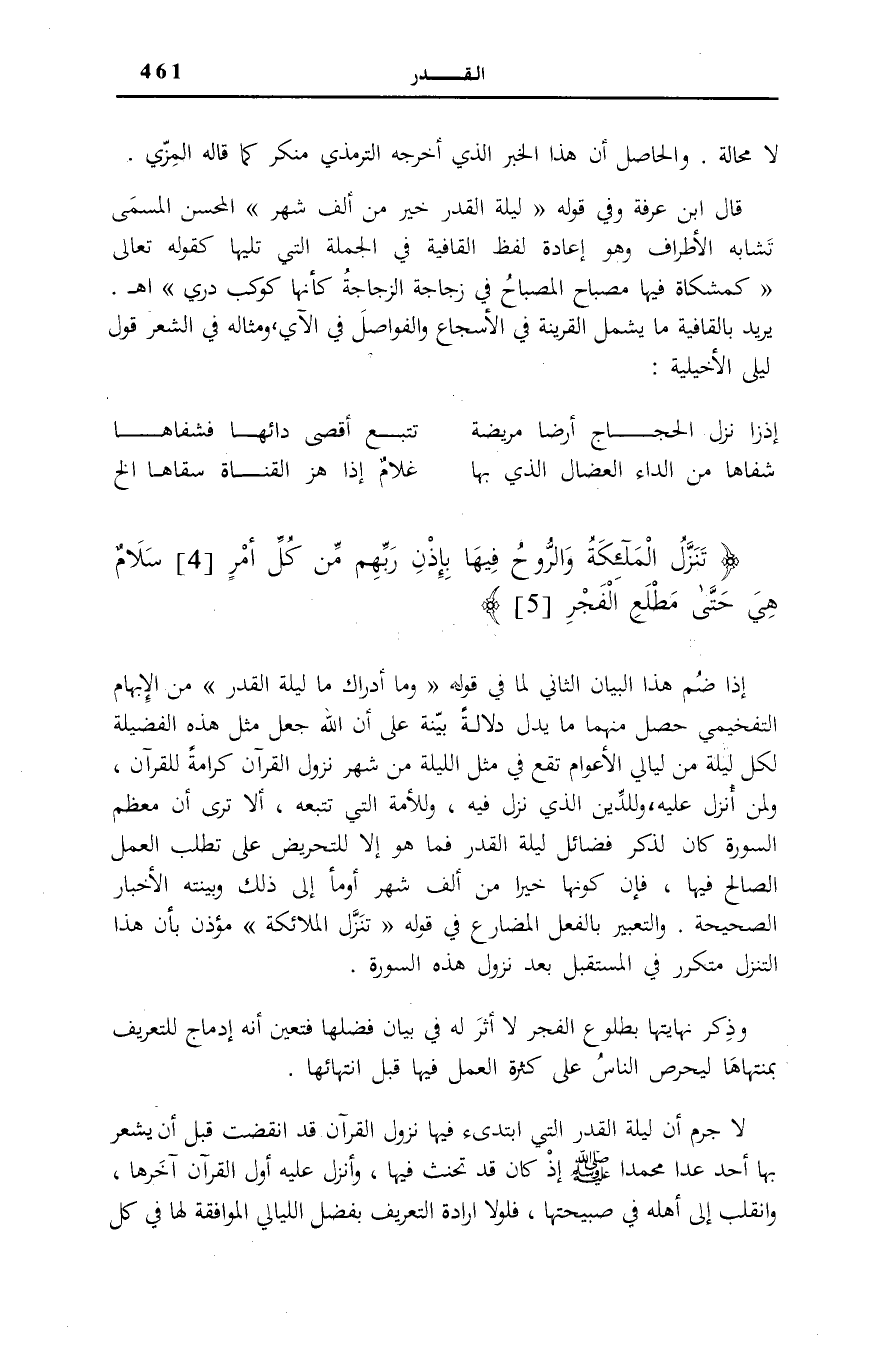 القـــــدر 461
لا محالة . والحاصل أن هذا الخبر الذي أخرجه الترمذي منكر كما قاله المِزّي .
قال ابن عرفة وفي قوله « ليلة القدر خير من ألف شهر » المحسن المسمَى
تَشابه الأطراف وهو إعادة لفظ القافية في الجملة التي تليها كقوله تعالى
« كمشكاة فيها مصباح المصباحُ في زجاجة الزجاجةُ كأنها كوكب دري » اهـ .
يريد بالقافية ما يشمل القرينة في الأسجاع والفواصلَ في الآي،ومثاله في الشعر قول
ليلى الأخيلية :
إذزا نزل الحجـــــــاج أرضا مريضة تتبـــع أقصى دائهـــا فشفاهـــــــا
شفاها من الداء العضال الذي بها غلامٌ إذا هز القنـــــاة سقاهـا الخ
﴿ تَنَزَّلُ الْمَلَٰٓئِكَةُ وَالرُّوحُ فِيهَا بِإِذْنِ رَبِّهِم مِّن كُلِّ أَمْرٍ [4] سَلَامٌ
هِيَ حَتَّىٰ مَطْلَعِ الْفَجْرِ [5] ﴾
إذا ضُم هذا البيان الثاني لما في قوله « وما أدراك ما ليلة القدر » من الإِبهام
التفخيمي حصل منهما ما يدل دلالةً بيّنة على أن الله جعل مثل هذه الفضيلة
لكل ليلة من ليالي الأعوام تقع في مثل الليلة من شهر نزول القرآن كرامةً للقرآن ،
ولمن أُنزل عليه،وللدِّين الذي نزل فيه ، وللأمة التي تتبعه ، ألا ترى أن معظم
السورة كان لذكر فضائل ليلة القدر فما هو إلا للتحريض على تطلب العمل
الصالح فيها ، فإن كونها خيرا من ألف شهر أومأ إلى ذلك وبينته الأخبار
الصحيحة . والتعبير بالفعل المضارع في قوله « تنَزَّل الملائكة » مؤذن بأن هذا
التنزل متكرر في المستقبل بعد نزول هذه السورة .
وذِكر نهايتها بطلوع الفجر لا أثرَ له في بيان فضلها فتعين أنه إدماج للتعريف
بمنتهاهَا ليحرص الناسُ على كثرة العمل فيها قبل انتهائها .
لا جرم أن ليلة القدر التي ابتدىء فيها نزول القرآن قد انقضت قبل أن يشعر
بها أحد عدا محمدا ﷺ إذْ كان قد تحنث فيها ، وأنزل عليه أول القرآن آخَرها ،
وانقلب إلى أهله في صبيحتها ، فلولا ارادة التعريف بفضل الليالي الموافقة لها في كل